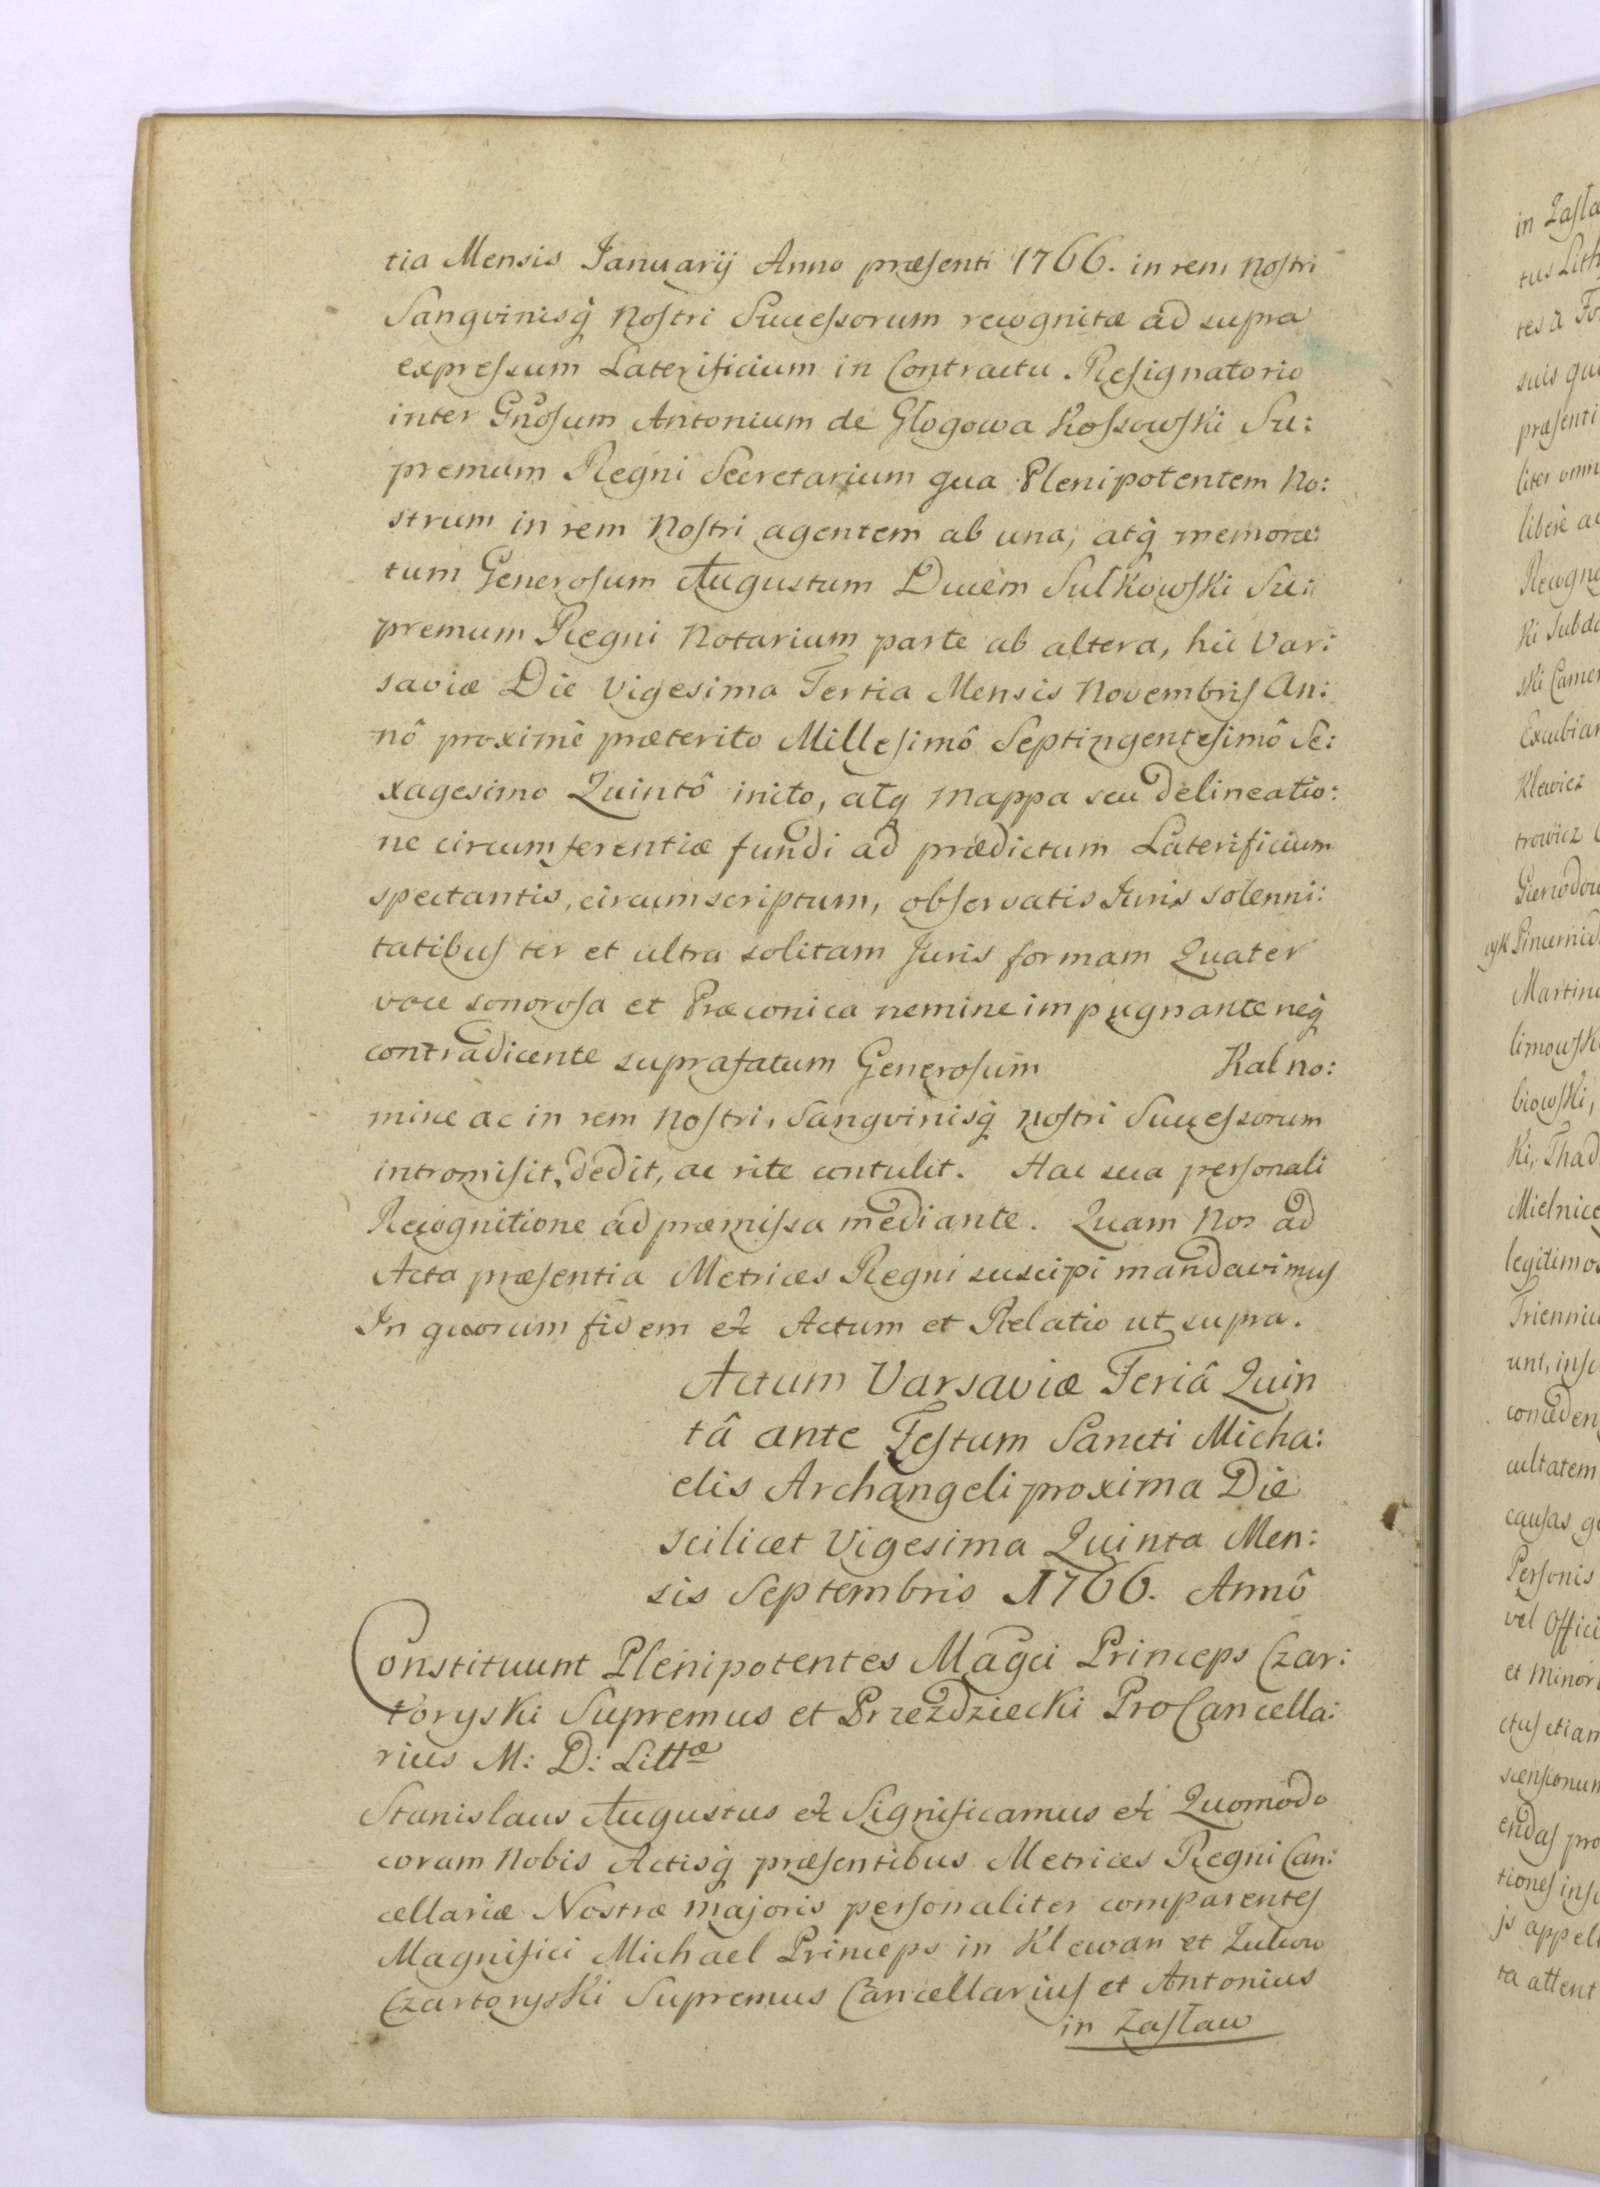 tia Mensis Januarij Anno præsenti 1766. in rem Nostri
Sangvinisq̃ Nostri Successorum recognitæ ad supra
expressum Laterificium in Contractu Resignatorio
inter Gñosum Antonium de Głogowa Kossowski Su:
premum Regni Secretarium qua Plenipotentem No:
strum in rem Nostri agentem ab una, atq̃ memora:
tum Generosum Augustum Ducem Sułkowski Su:
premum Regni Notarium parte ab altera, hic Var:
saviæ Die Vigesima Tertia Mensis Novembris An:
nô proximè præterito Millesimô Septingentesimô Se:
xagesimo Quintô inito, atq̃ Mappa seu delineatio:
ne circumferentiæ fundi ad prædictum Laterificium
spectantis, circumscriptum, observatis Juris solenni:
tatibus ter et ultra solitam Juris formam Quater
voce sonorosa et Præconica nemine impugnante neq̃
contradicente suprafatum Generosum Kal no:
mine ac in rem Nostri, Sangvinisq̃ nostri Successorum
intromisit, dedit, ac rite contulit. Hac sua personali
Recognitione ad præmissa mediante. Quam Nos ad
Acta præsentia Metrices Regni suscipi mandavimus
In quorum fidem &c Actum et Relatio ut supra.
Actum Varsaviæ Feriâ Quin
tâ ante Festum Sancti Micha:
elis Archangeli proxima Die
scilicet Vigesima Quinta Men:
sis Septembris 1766. Annô
Constituunt Plenipotentes Magci Princeps Czar:
toryski Supremus et Przezdziecki ProCancella:
rius M: D: Littæ
Stanislaus Augustus &c Significamus &c Quomodo
coram Nobis Actisq̃ præsentibus Metrices Regni Can:
cellariæ Nostræ majoris personaliter comparentes
Magnifici Michael Princeps in Klewan et Zukow
Czartoryski Supremus Cancellarius et Antonius
in Zasław
in Zasła
tus Lith
tes à
suis
præsenti
liter
libere
Recogn
ki
ski Camer
Excubiar
Klewicz
trowicz
Martin
limowsk
biowski,
ki, Thad
Mielnice
legitimos
Trienniu
unt,
conceden
cultatem
causas
Personis
vel Offici
et Minor
ctus etiam
scensionum
endas pro
tiones
js appel
ta attent